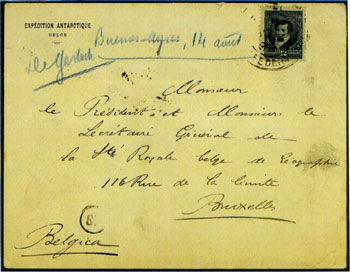 EXPÉDITION ANTARCTIQUE
BELGE
de Gerlache
Buenos-Ayres, 14 août
Monsieur
le Président et Monsieur le
Secrétaire Général de
la Sté Royale belge de Géographie
116 Rue de la limite
Bruxelles
8
Belgica